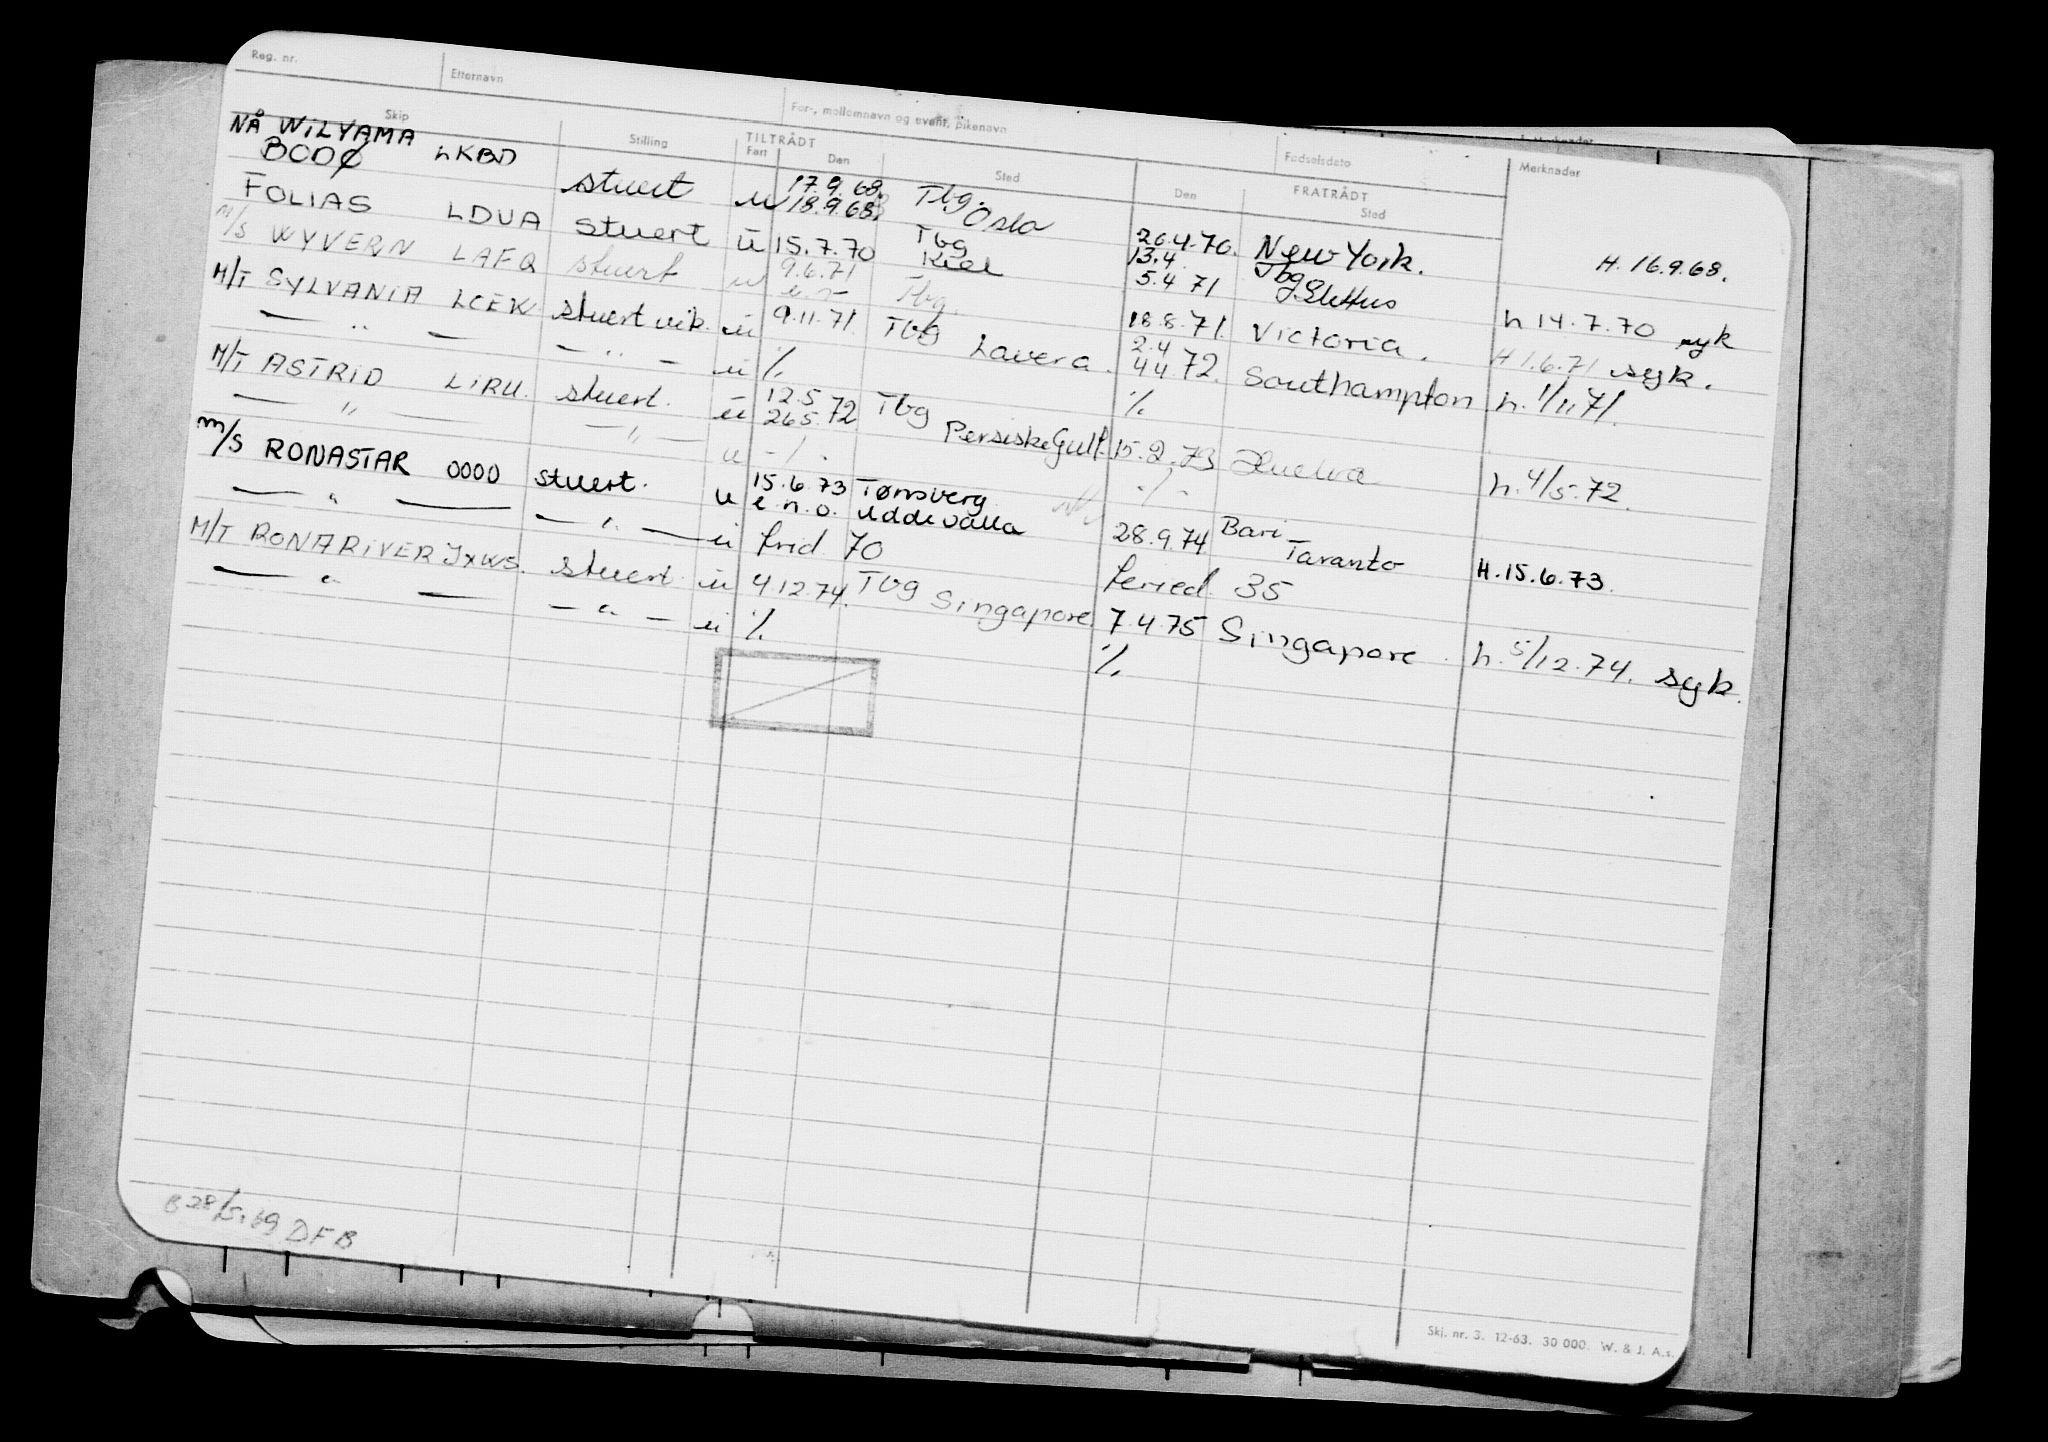 Reg. nr. Etternavn For-, mellomnavn og event. pikenavn Fødselsdato
Skip Stilling TILTRÅDT FRATRÅDT Merknader
Fart Den Sted Den Sted
NÅ WILYAMA
BODØ LKBD stuert u 17.9.68. Tbg. 26.4.70. New York. H. 16.9.68.
18.9.68. Oslo 13.4 Tbg
FOLIAS LDUA stuert u 15.7.70 Tbg 5.4 71 h 14.7.70 syk
Kiel
m/s WYVERN LAFQ stuert u 9.6.71 Tbg. 18.8.71. Victoria. H 1.6.71 syk.
M/T SYLVANIA LCEK stuert vik. u 9.11.71. Tbg Lavera. 2.4 4 4 72. Southampton h. 1/11.71.
— " — — " — u % %
M/T ASTRID LIRU. stuert. u 12.5 26.5 72 Tbg Persiske Gulf. 15.2.73 Huelva h. 4/5.72.
— " — — " — u -/- -/-
m/s RONASTAR 0000 stuert. u 15.6.73 Tønsverg 28.9.74 Bari H. 15.6.73.
e.n.o. Uddevalla Taranto
— " — — " — u Pried 70 Peried. 35
M/T RONARIVER JXWS. stuert u 4.12.74. Tbg Singapore. 7.4.75 Singapore. h. 5/12.74. syk.
— " — — " — u % %
B 28/5.69 DFB
Skj. nr. 3. 12-63. 30 000. W. & J. A.s.